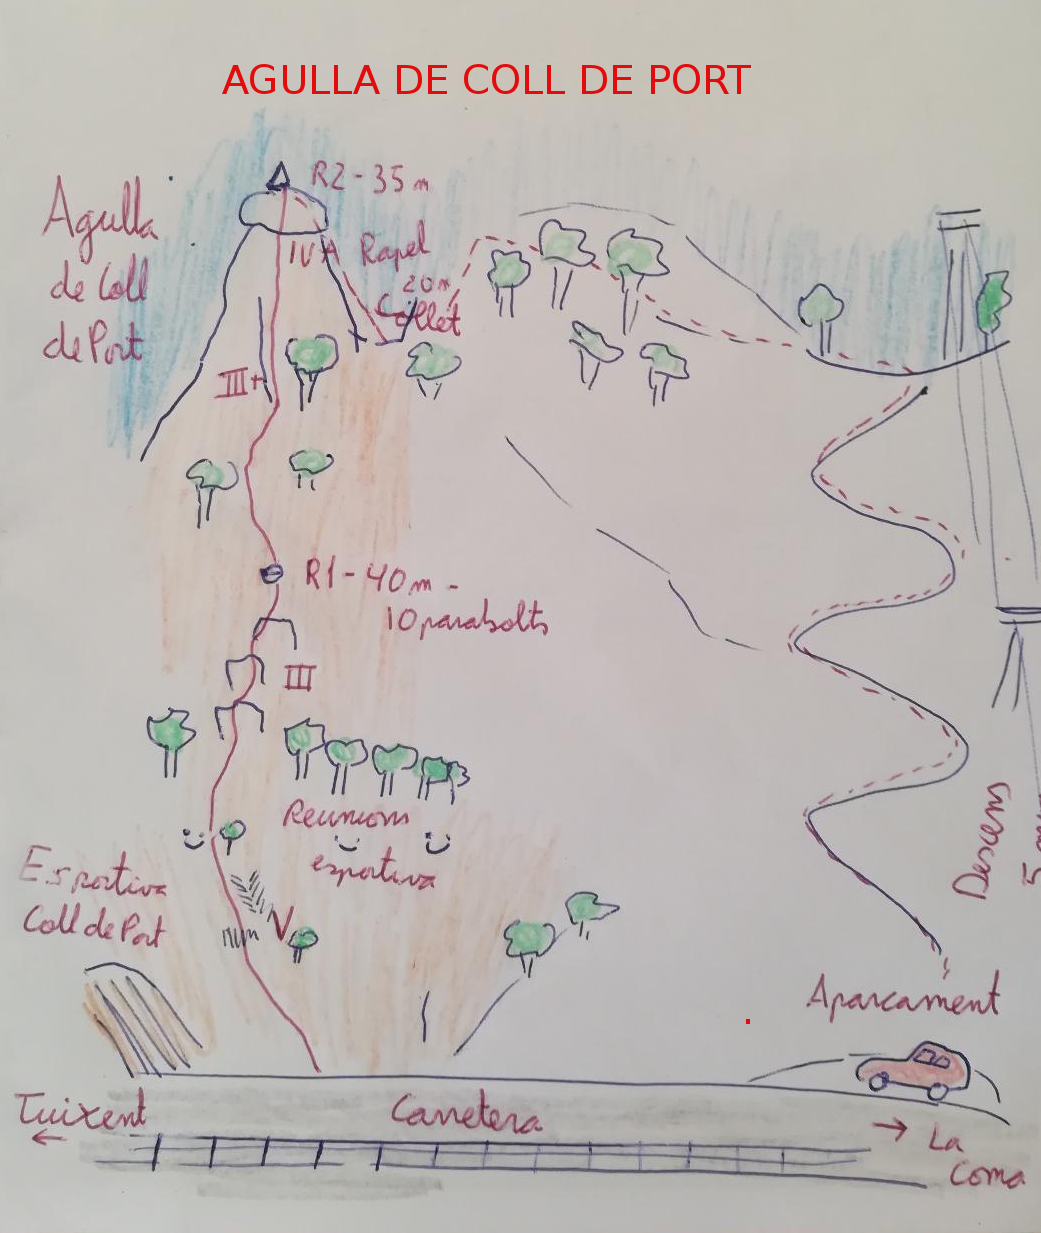 AGULLA DE COLL DE PORT
R2 - 35 m
Agulla
de Coll
de Port
IV+
Rapel
20 m
Collet
III+
R1 - 40 m -
10 parabolts
III
Reunions
esportiva
Esportiva
Coll de Port
V
Descens
5
Aparcament
Tuixent
←
Carretera
→ La
Coma